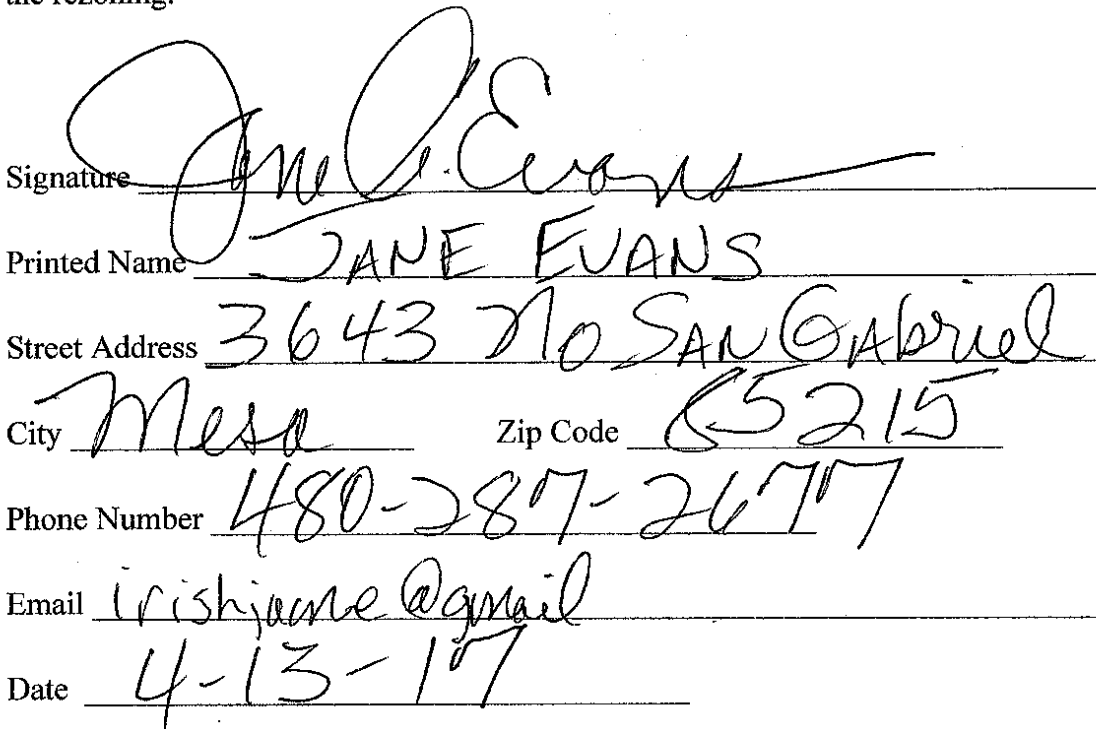 the rezoning.
Signature Jane A. Evans
Printed Name JANE EVANS
Street Address 3643 No SAN GAbriel
City Mesa Zip Code 85215
Phone Number 480-287-2677
Email irishjane@gmail
Date 4-13-17